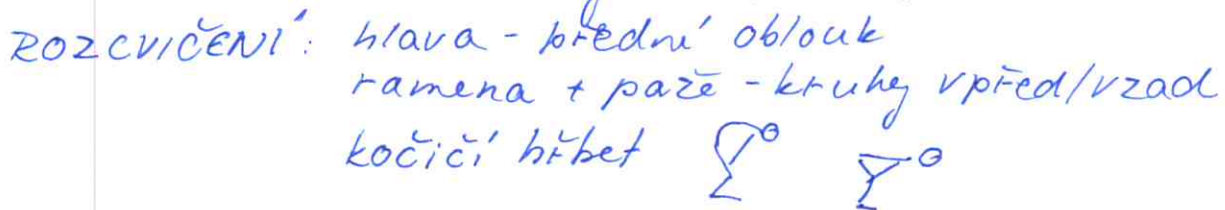 ROZCVIČENÍ: hlava - přední oblouk
ramena + paže - kruhy vpřed/vzad
kočičí hřbet